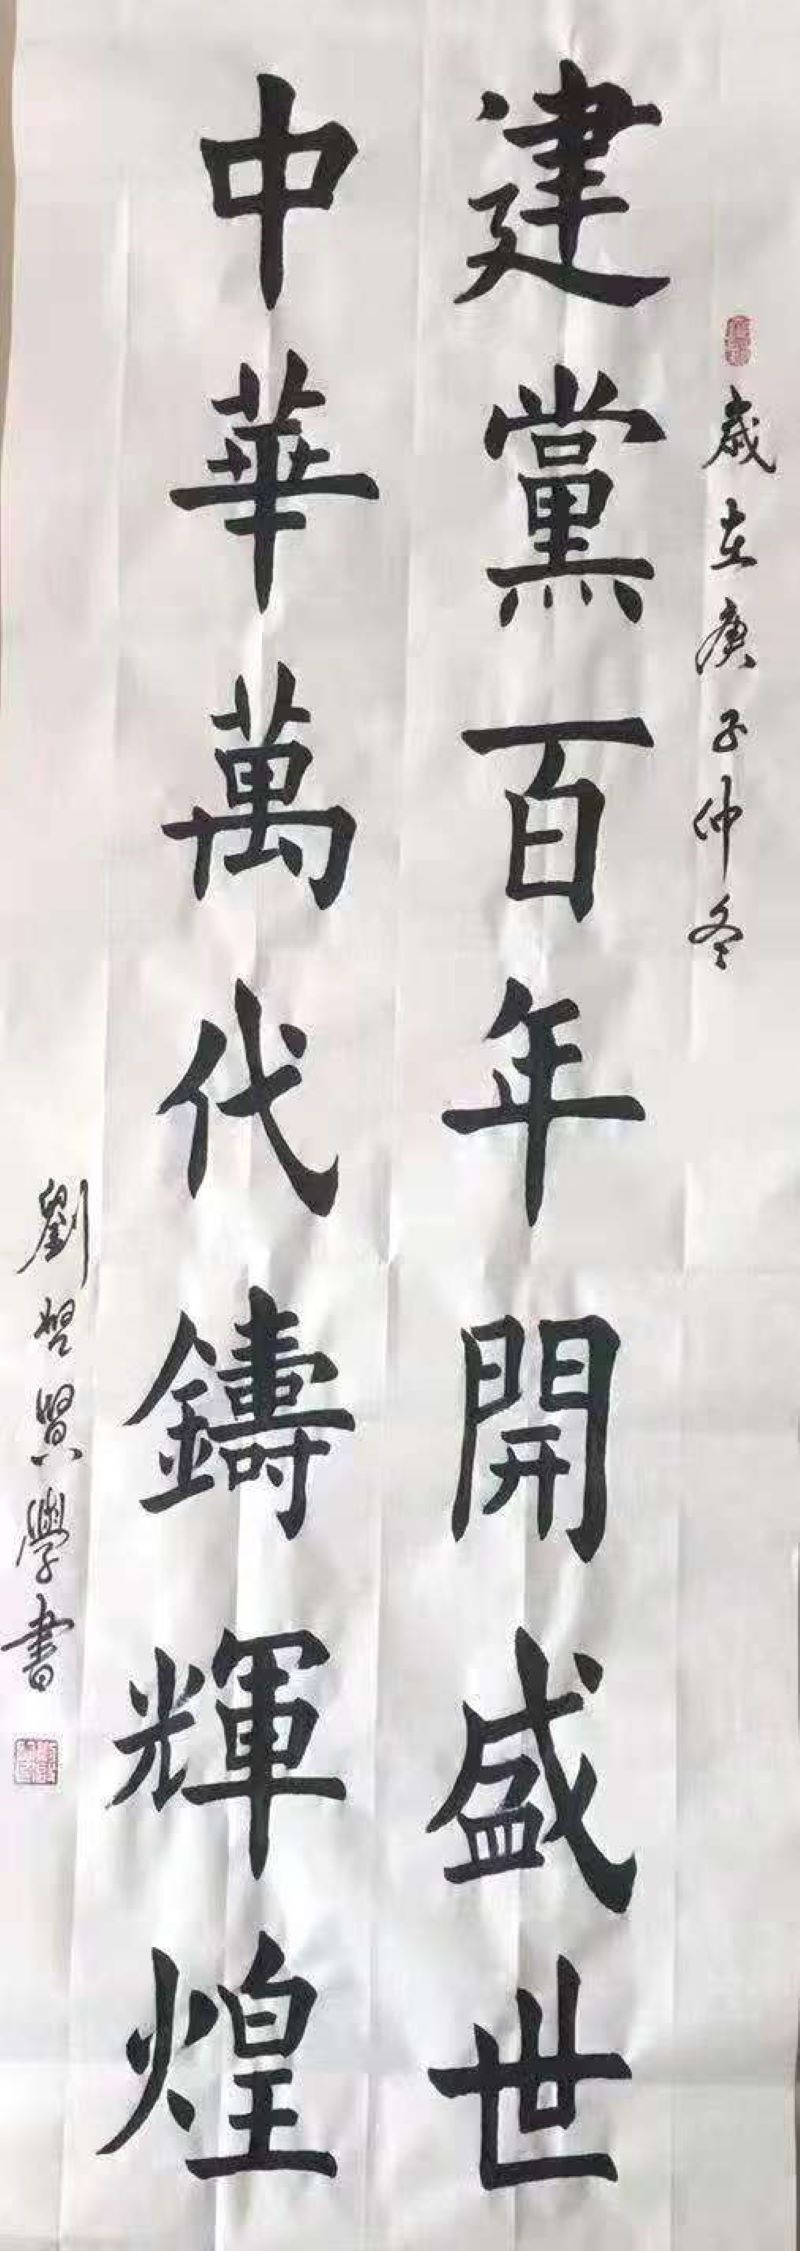 歲在庚子仲冬
建黨百年開盛世
中華萬代鑄輝煌
劉智賢學書